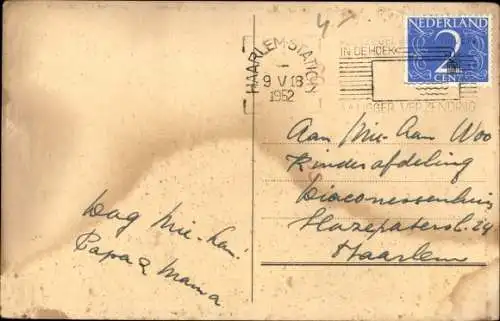 HAARLEM-STATION
9 V 18
1952
IN DE HOEK
VLUGGER VERZENDING
NEDERLAND
2
CENT
Aan Mie-Aan Woo
Kinderafdeling
Diaconessenhuis
Hazepaterslaan 24
Haarlem
Dag Mie-han.
Papa & Mama